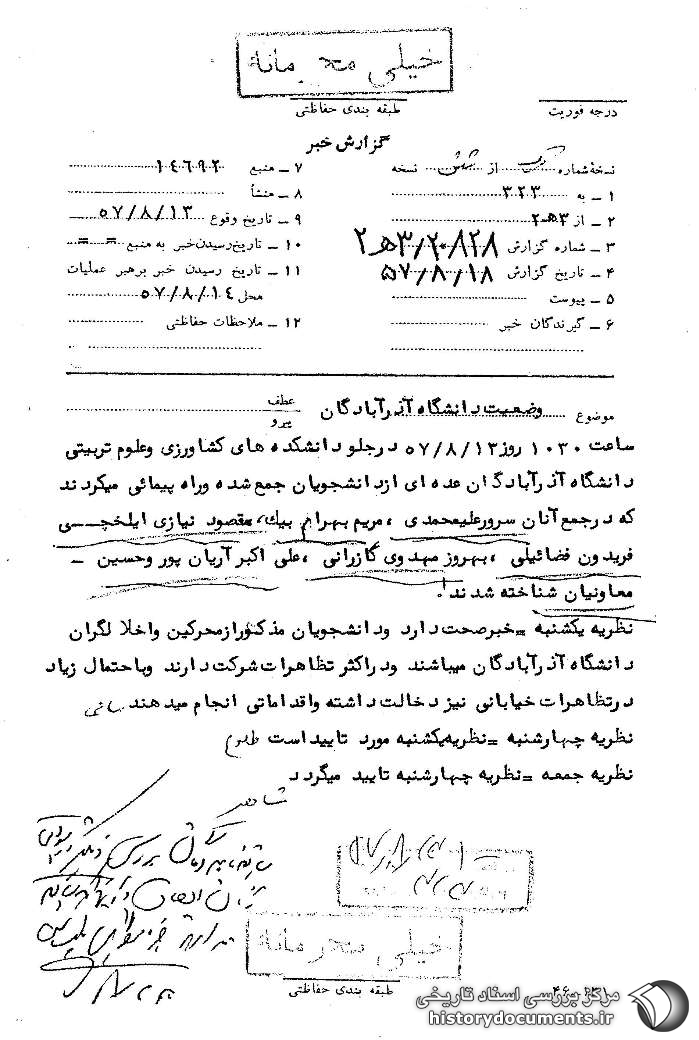 خیلی محرمانه
درجه فوریت
طبقه بندی حفاظتی
گزارش خبر
نسخهٔ شماره یک از شش نسخه
۱ ـ به ۳۲۳
۲ ـ از ۲ه۳
۳ ـ شماره گزارش ۲ه۳/۲۰۸۲۸
۴ ـ تاریخ گزارش ۵۷/۸/۱۸
۵ ـ پیوست
۶ ـ گیرندگان خبر
۷ ـ منبع ۱۴۶۹۲
۸ ـ منشأ
۹ ـ تاریخ وقوع ۵۷/۸/۱۳
۱۰ ـ تاریخ رسیدن خبر به منبع = =
۱۱ ـ تاریخ رسیدن خبر برهبر عملیات
محل ۵۷/۸/۱۴
۱۲ ـ ملاحظات حفاظتی
موضوع وضعیت دانشگاه آذرآبادگان
عطف
پیرو
ساعت ۱۰۳۰ روز ۵۷/۸/۱۳ درجلو دانشکده های کشاورزی وعلوم تربیتی
دانشگاه آذرآبادگان عده ای ازدانشجویان جمع شده وراه پیمائی میکردند
که درجمع آنان سرورعلیمحمدی ، مریم بهرام بیك، مقصود نیازی ایلخچـــی
فریدون فضائیلی ، بهروز مهدوی گازرانی ، علی اکبر آریان پور وحسین ـ
معاونیان شناخته شدند .
نظریه یکشنبه = خبرصحت دارد ودانشجویان مذکورازمحرکین واخلالگران
دانشگاه آذرآبادگان میباشند ودراکثر تظاهرات شرکت دارند وباحتمال زیاد
درتظاهرات خیابانی نیز دخالت داشته واقداماتی انجام میدهند
نظریه چهارشنبه = نظریه یکشنبه مورد تایید است
نظریه جمعه = نظریه چهارشنبه تایید میگردد
خیلی محرمانه
طبقه بندی حفاظتی
مرکز بررسی اسناد تاریخی
historydocuments.ir